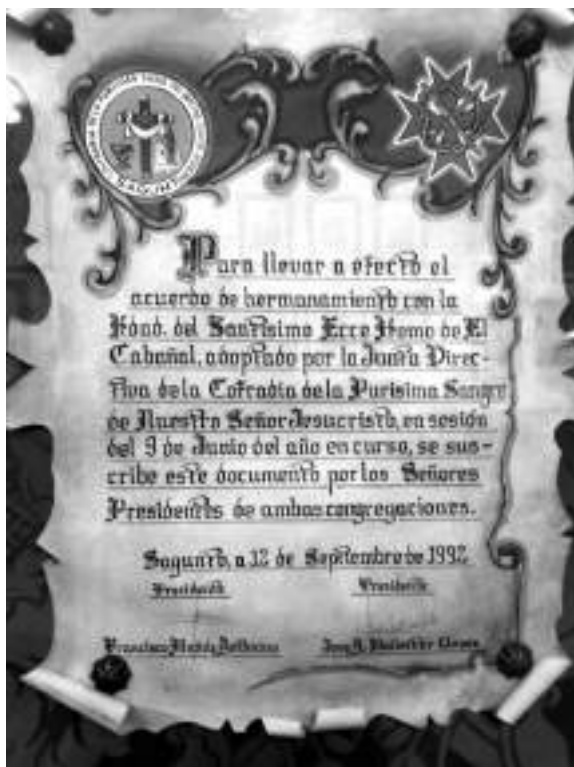 Para llevar a efecto el
acuerdo de hermanamiento con la
Hdad. del Santísimo Ecce Homo de El
Cabañal, adoptado por la Junta Direc-
tiva de la Cofradía de la Purísima Sangre
de Nuestro Señor Jesucristo, en sesión
del 9 de Junio del año en curso, se sus-
cribe este documento por los Señores
Presidentes de ambas congregaciones.
Sagunto, a 12 de Septiembre de 1992
Presidente Presidente
Francisco